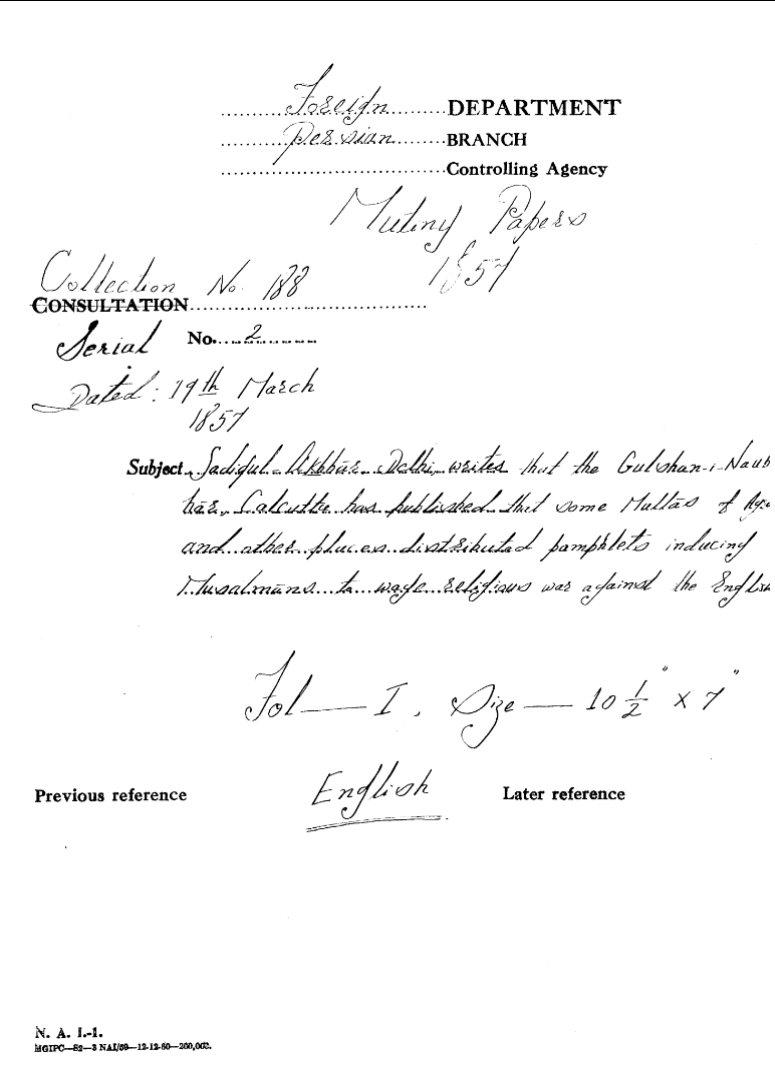 Foreign DEPARTMENT
Persian BRANCH
Controlling Agency
Mutiny Papers
1857
Collection No. 188
CONSULTATION
Serial No. 2
Dated: 19th March
1857
Subject Sadiqul-Akhbār Delhi writes that the Gulshan-i-Naub
hār, Calcutta has published that some Mullās of
and other places distributed pamphlets inducing
Musalmāns to wage religious war against the English
Fol — I, Size — 10 1/2" x 7"
Previous reference English Later reference
N. A. I.-1.
MGIPC—S2—3 NAI/59—12-12-60—200,000.